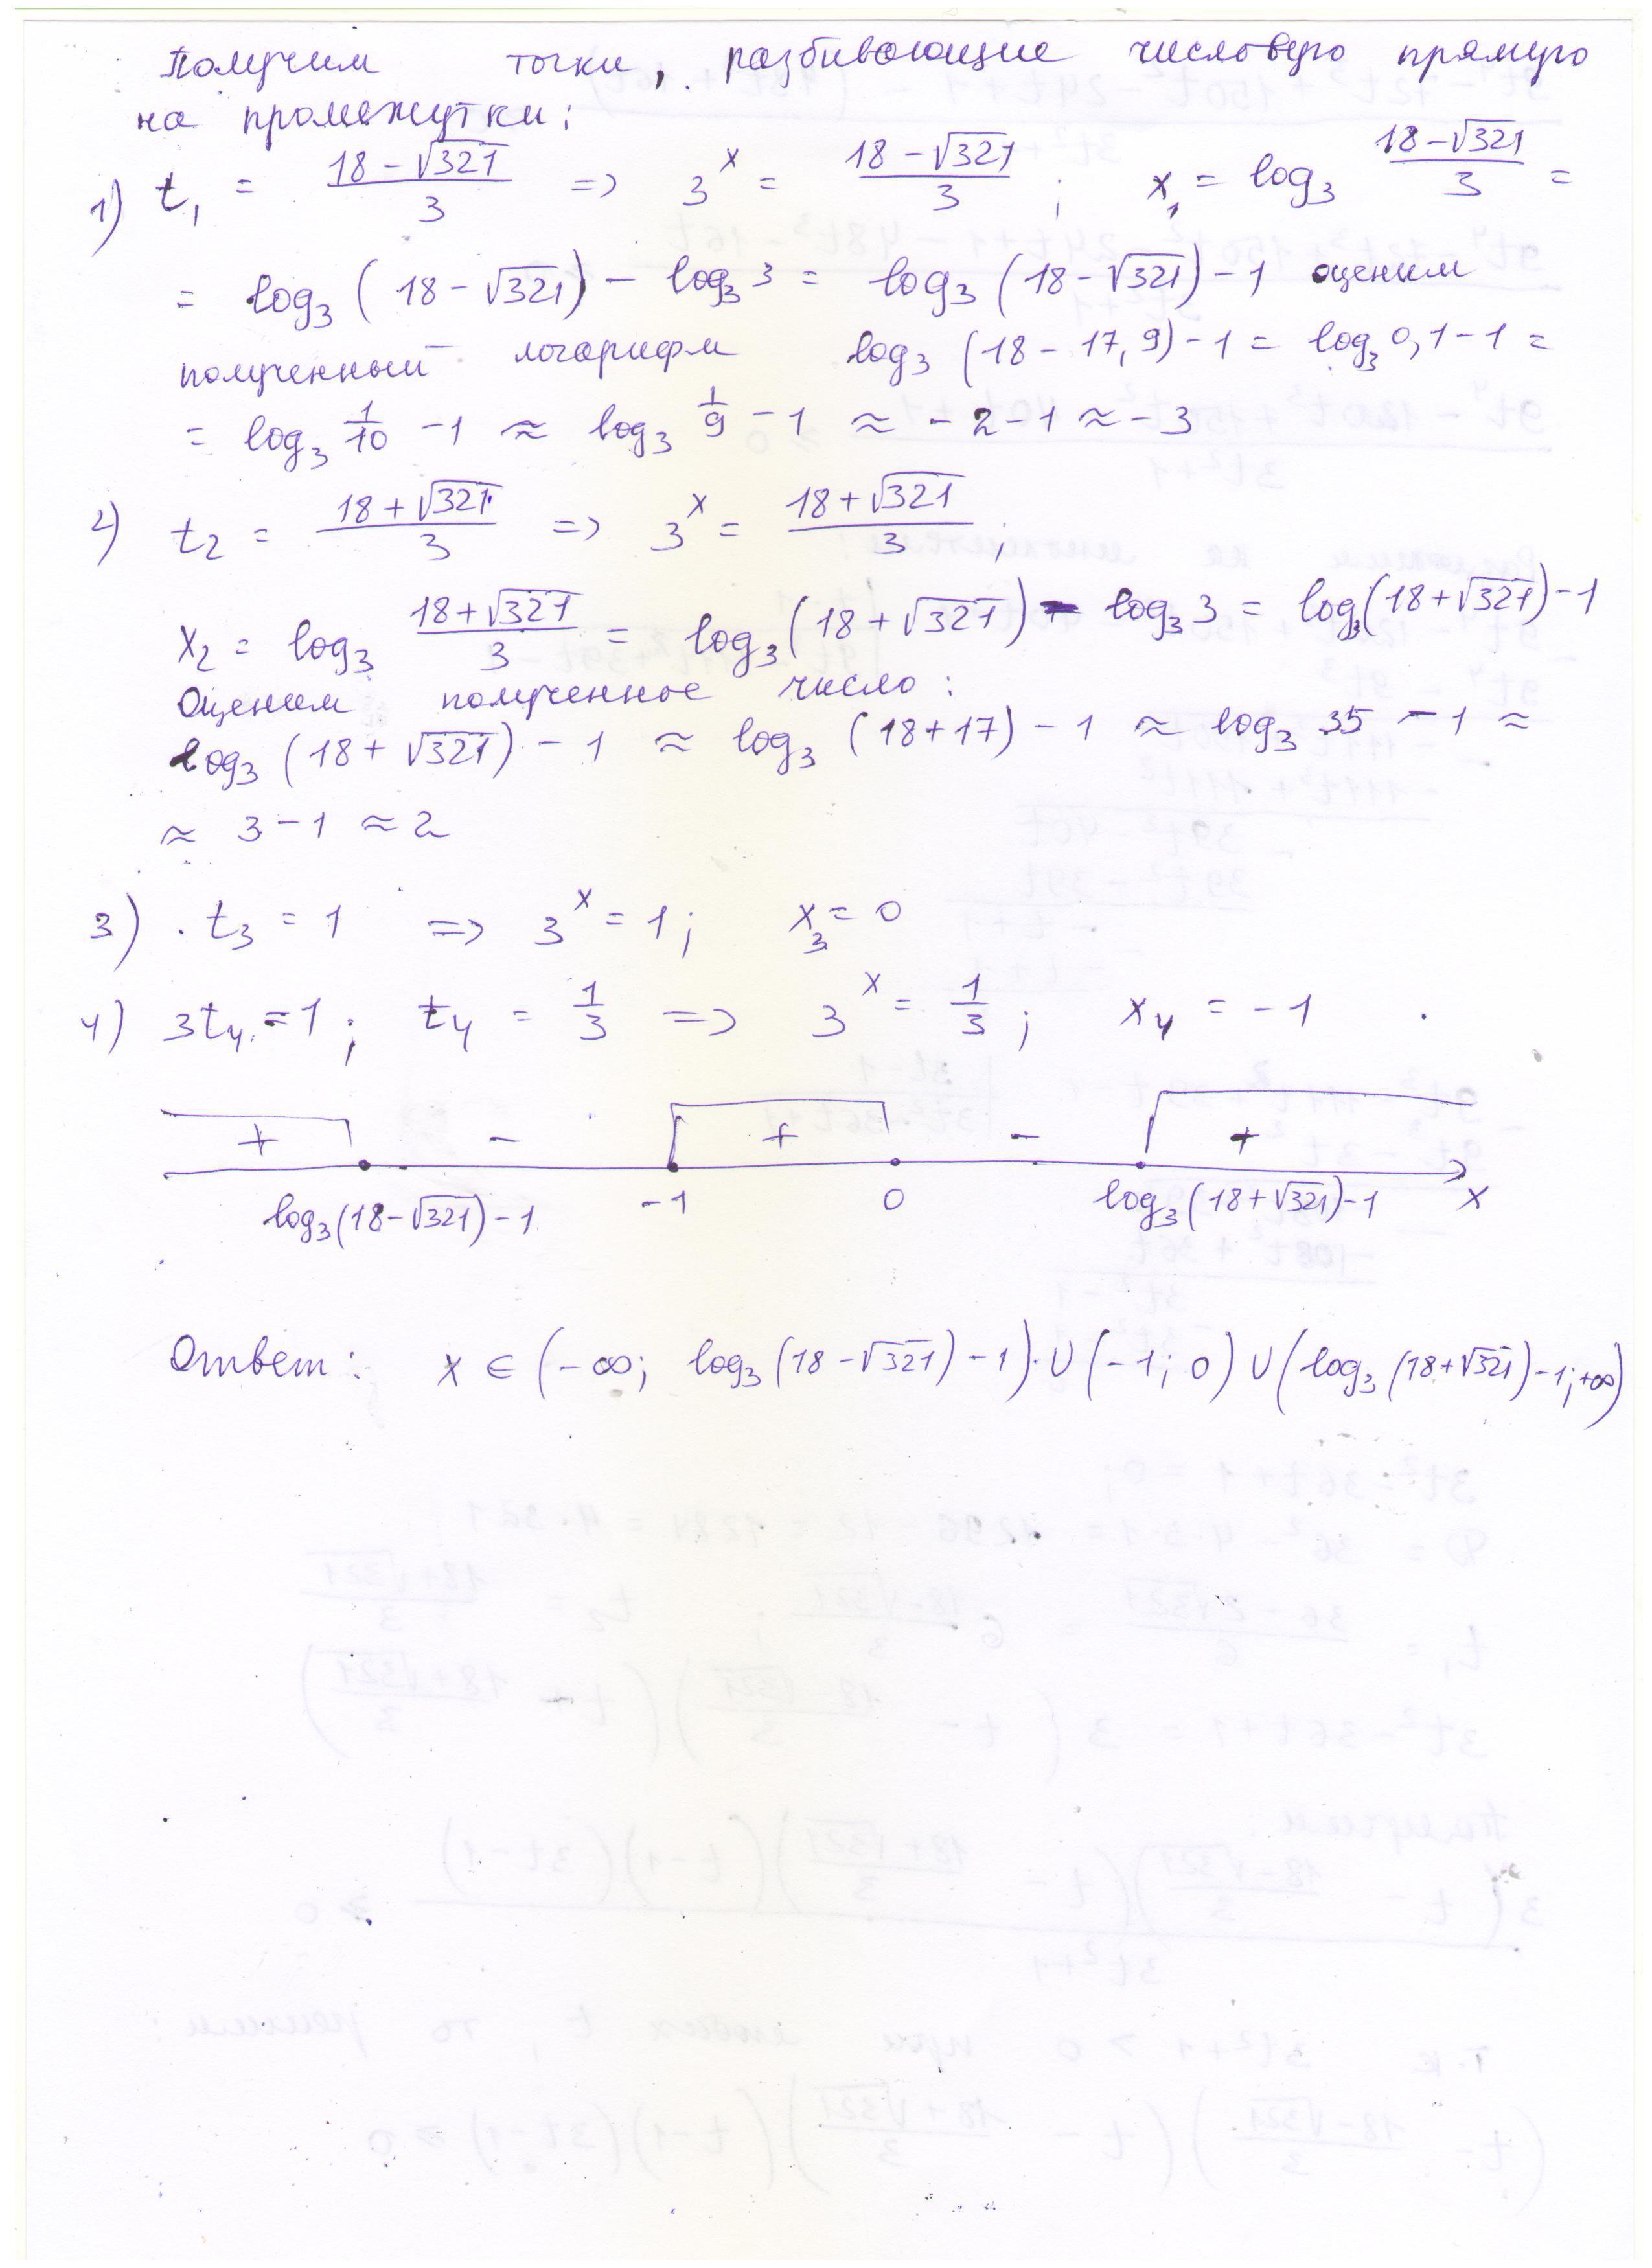 Получим точки, разбивающие числовую прямую
на промежутки:
1) t₁ = (18 − √321)/3 => 3^x = (18 − √321)/3 ; x₁ = log₃ (18 − √321)/3 =
= log₃ (18 − √321) − log₃ 3 = log₃ (18 − √321) − 1 оценим
полученный логарифм log₃ (18 − 17,9) − 1 = log₃ 0,1 − 1 =
= log₃ 1/10 − 1 ≈ log₃ 1/9 − 1 ≈ − 2 − 1 ≈ − 3
2) t₂ = (18 + √321)/3 => 3^x = (18 + √321)/3 ;
x₂ = log₃ (18 + √321)/3 = log₃ (18 + √321) − log₃ 3 = log₃ (18 + √321) − 1
Оценим полученное число:
log₃ (18 + √321) − 1 ≈ log₃ (18 + 17) − 1 ≈ log₃ 35 − 1 ≈
≈ 3 − 1 ≈ 2
3) t₃ = 1 => 3^x = 1; x₃ = 0
4) 3t₄ = 1; t₄ = 1/3 => 3^x = 1/3; x₄ = −1
+ − + − +
log₃ (18 − √321) − 1 −1 0 log₃ (18 + √321) − 1 x
Ответ: x ∈ (−∞; log₃ (18 − √321) − 1) ∪ (−1; 0) ∪ (log₃ (18 + √321) − 1; +∞)